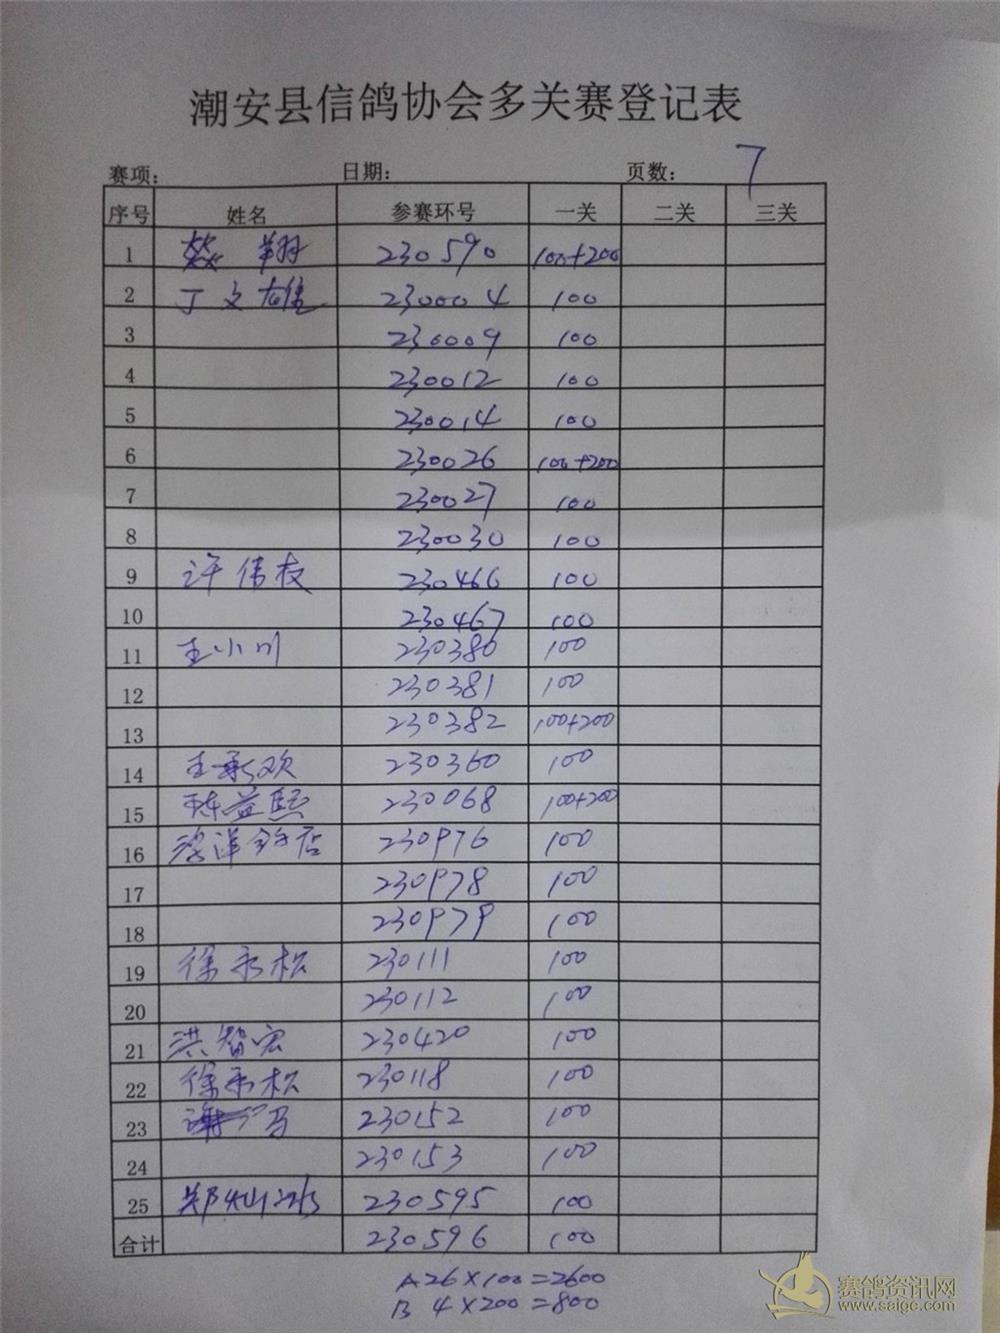 潮安县信鸽协会多关赛登记表
赛项: 日期: 页数: 7
序号 姓名 参赛环号 一关 二关 三关
1 翔 230590 100+200
2 丁文雄 230004 100
3 230009 100
4 230012 100
5 230014 100
6 230026 100+200
7 230027 100
8 230030 100
9 许伟友 230466 100
10 230467 100
11 王小川 230380 100
12 230381 100
13 230382 100+200
14 王承欢 230360 100
15 陈益熙 230068 100+200
16 230976 100
17 230978 100
18 230979 100
19 徐永松 230111 100
20 230112 100
21 洪智宏 230420 100
22 徐永松 230118 100
23 230152 100
24 230153 100
25 230595 100
合计 230596 100
A 26×100=2600
B 4×200=800
赛鸽资讯网
www.saigc.com